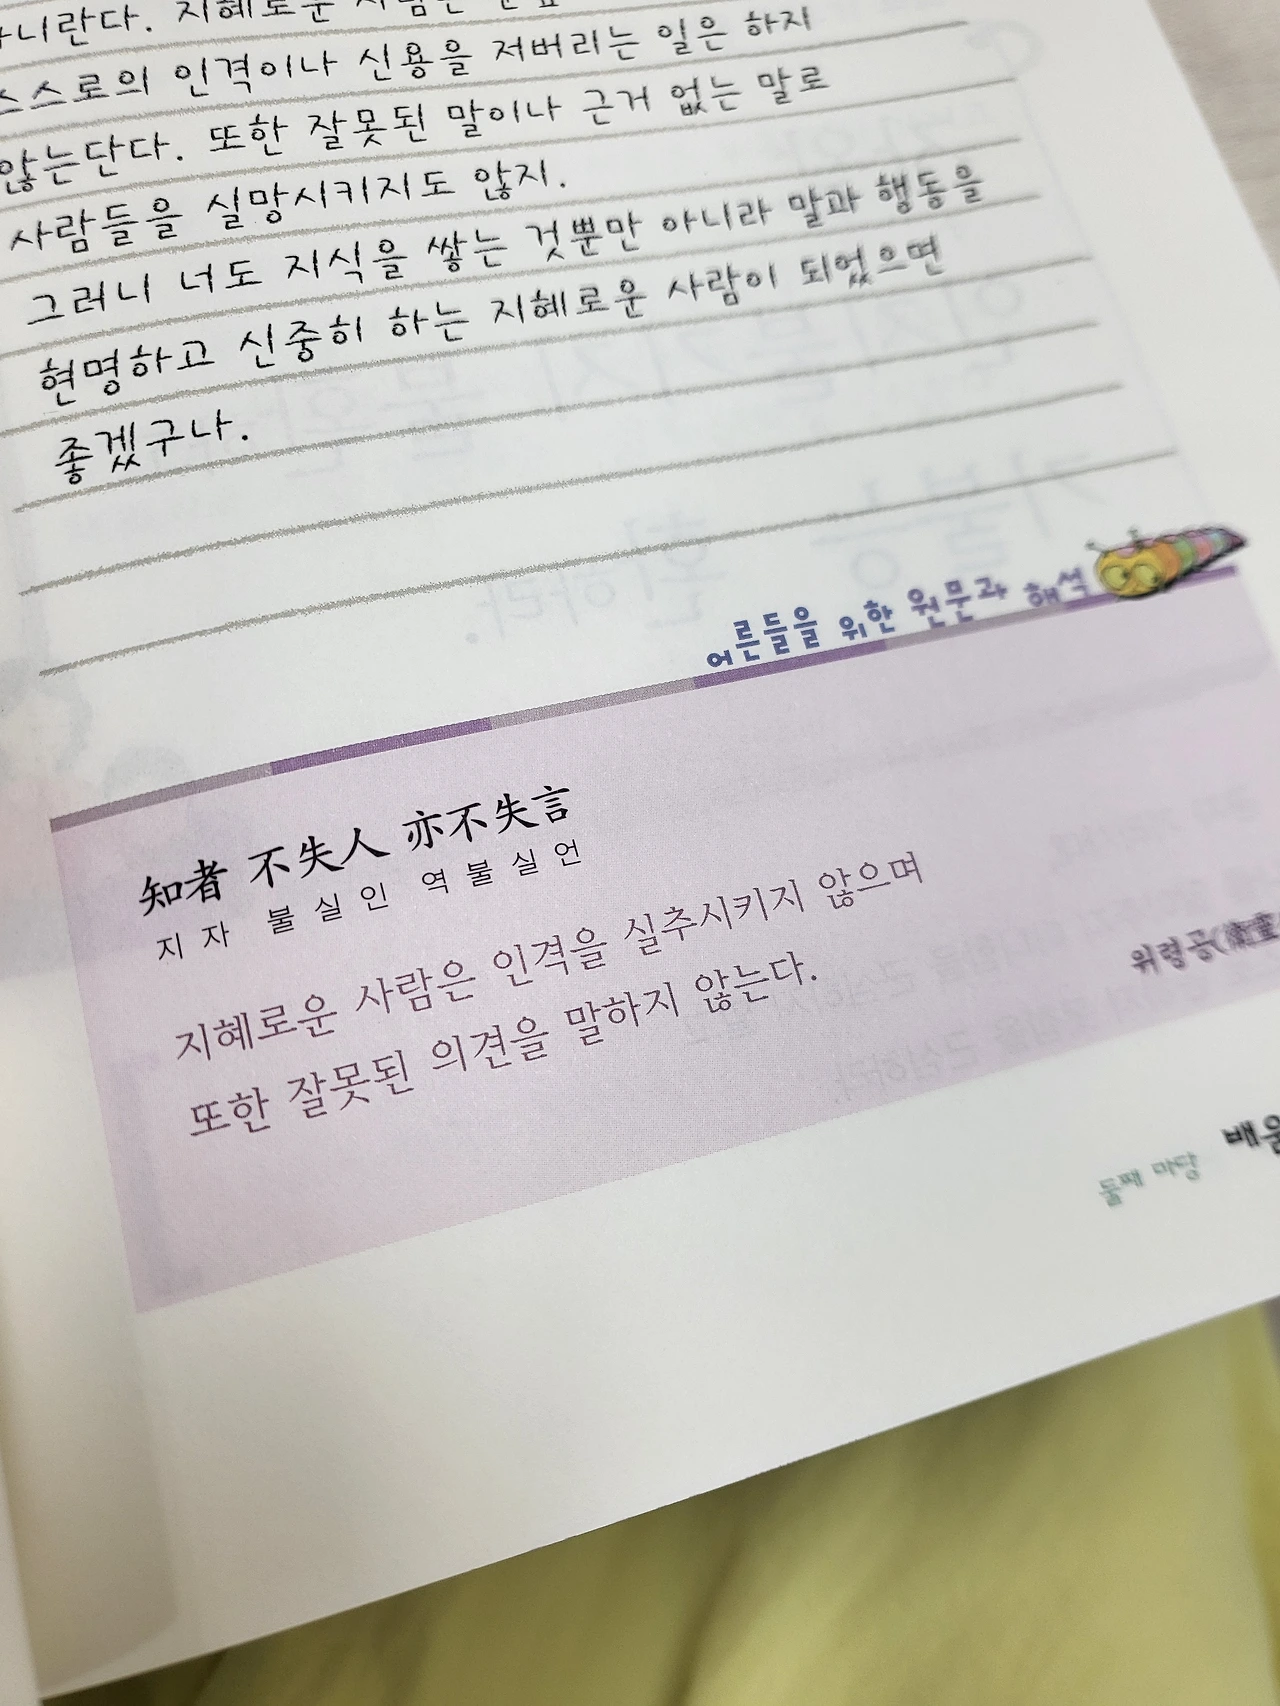 아니란다. 지혜로운 사람은
스스로의 인격이나 신용을 저버리는 일은 하지
않는단다. 또한 잘못된 말이나 근거 없는 말로
사람들을 실망시키지도 않지.
그러니 너도 지식을 쌓는 것뿐만 아니라 말과 행동을
현명하고 신중히 하는 지혜로운 사람이 되었으면
좋겠구나.
어른들을 위한 원문과 해석
知者 不失人 亦不失言
지자 불실인 역불실언
지혜로운 사람은 인격을 실추시키지 않으며
또한 잘못된 의견을 말하지 않는다.
위령공(衛靈
둘째 마당 배움